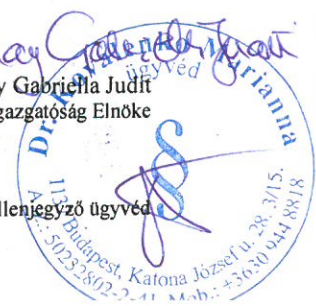 Gabriella Judit
y Gabriella Judit
gazgatóság Elnöke
llenjegyző ügyvéd
Dr. Marianna
ügyvéd
§
Budapest, Katona József u. 28. 3/15.
50232802-2-41. Mob.: +3630 944 8818